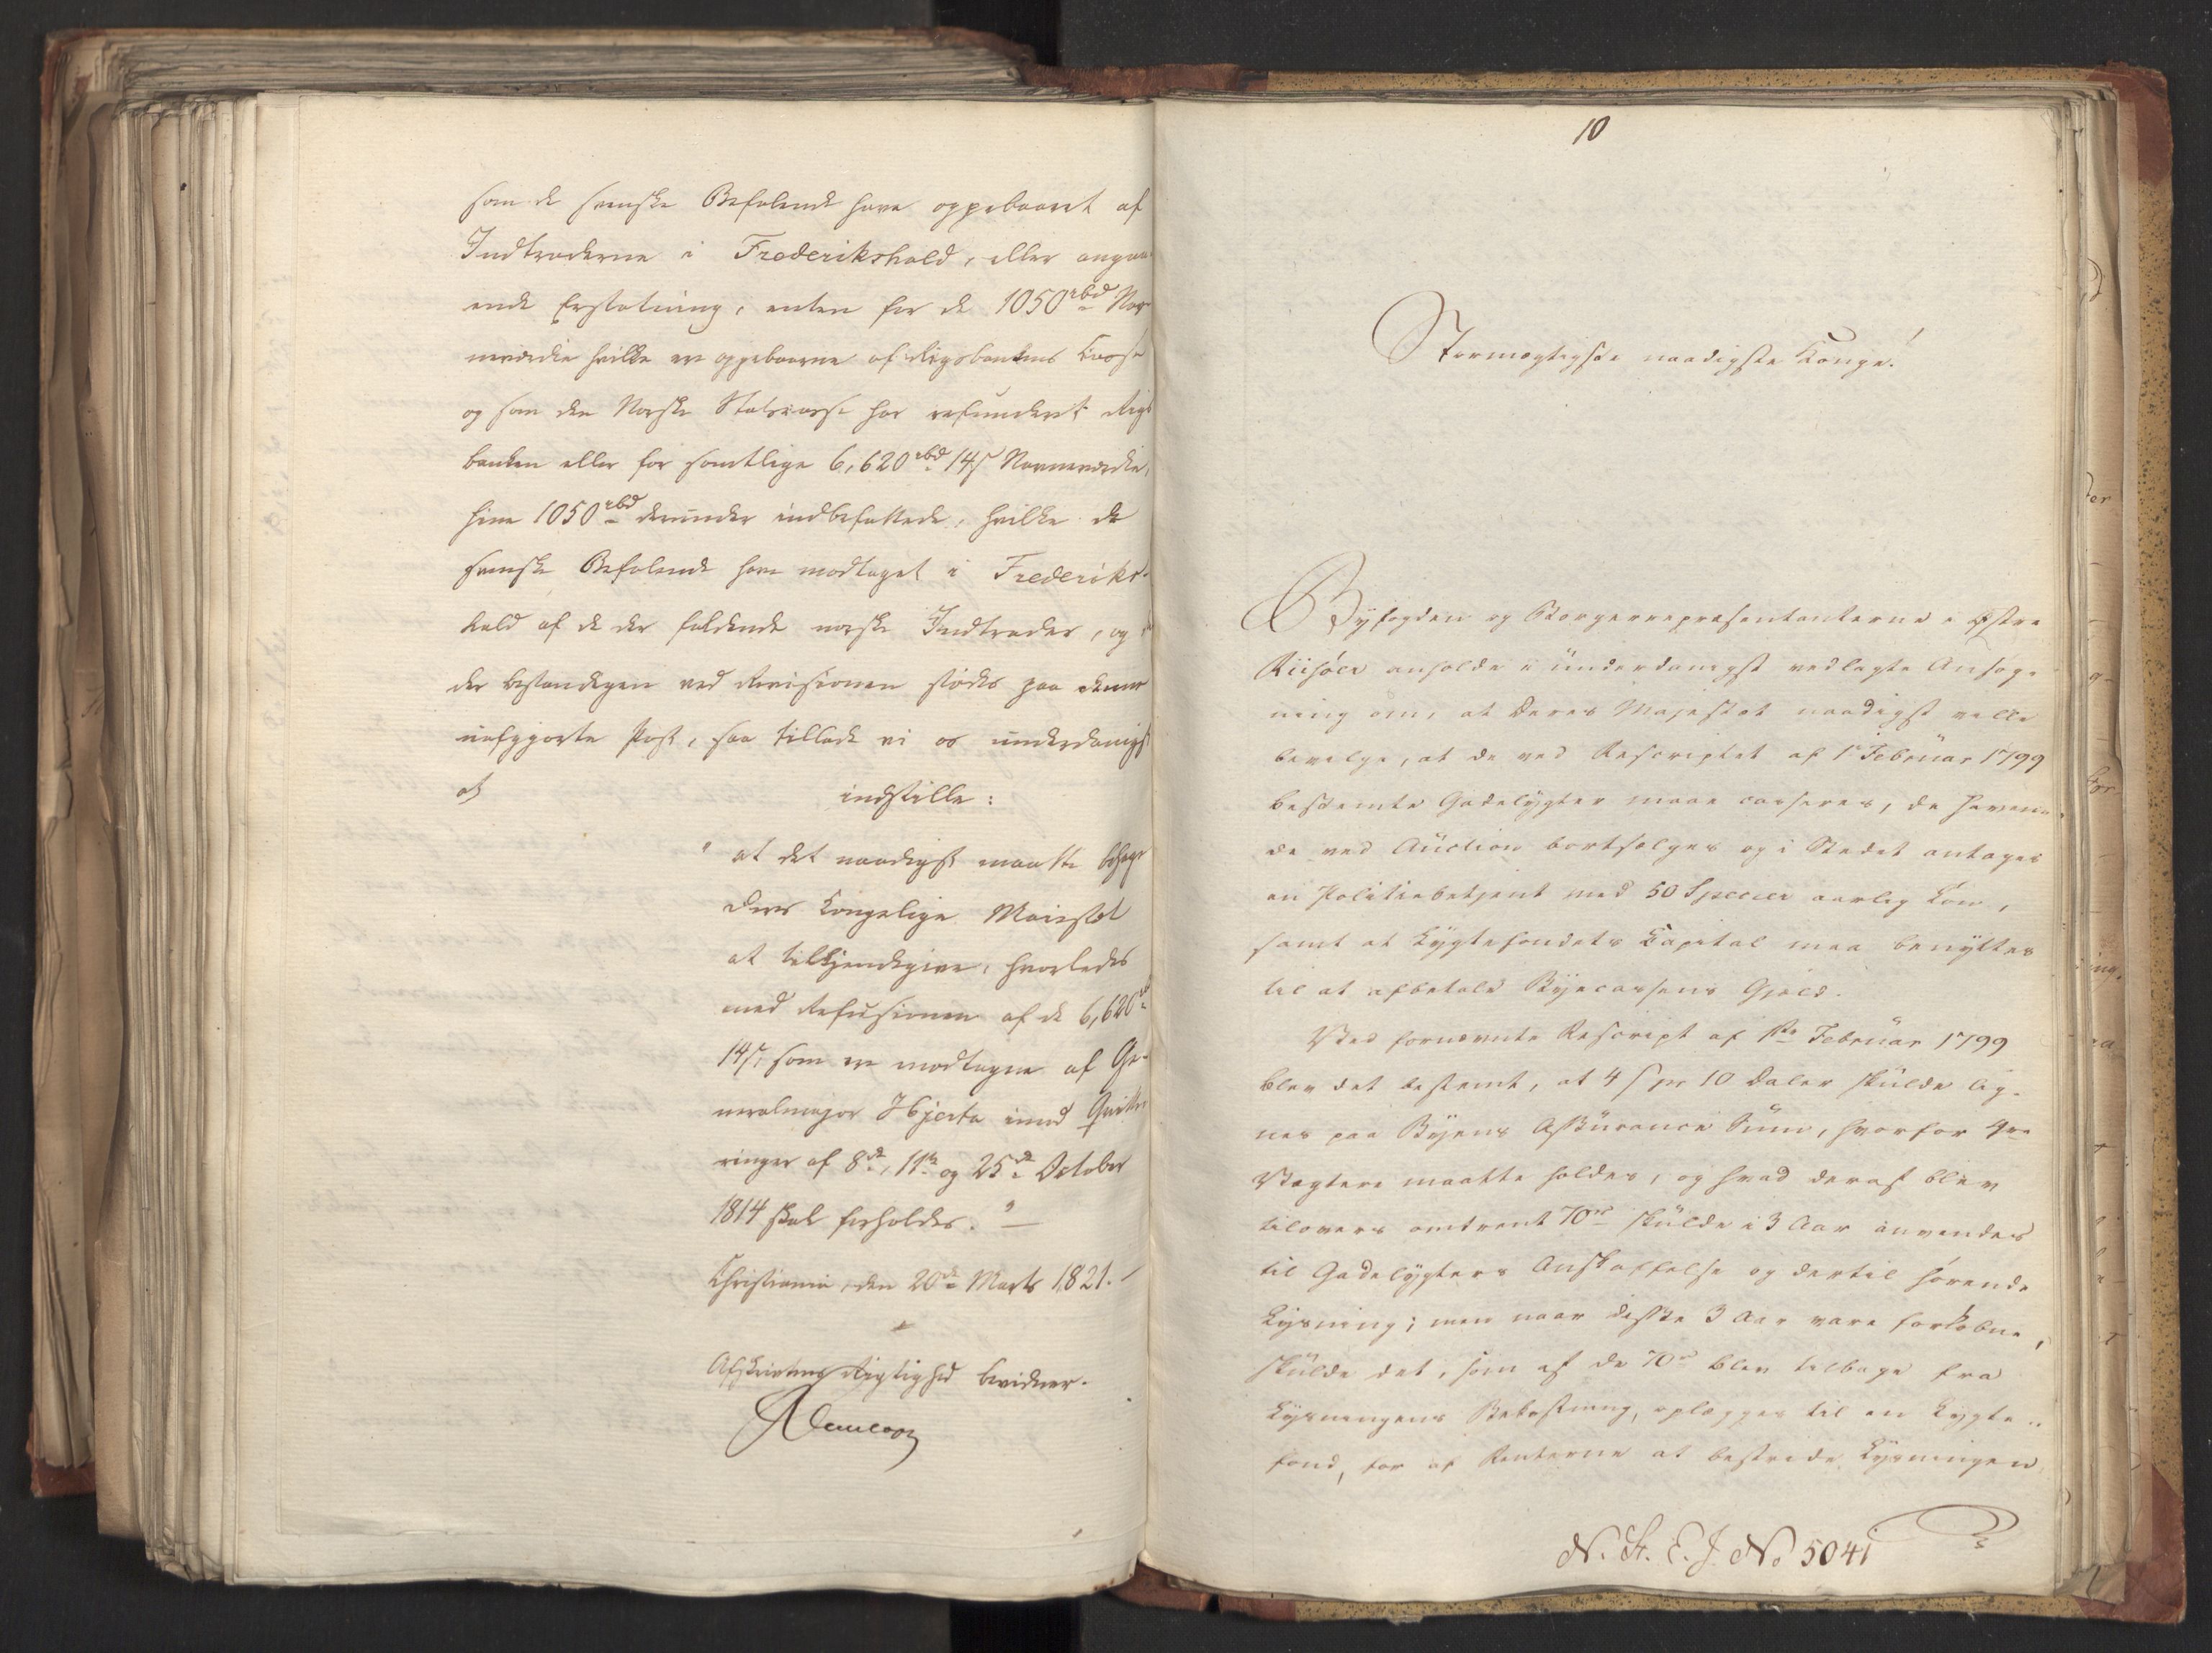 som de svenske Befalende have oppebaaret af
Indtraderne i Frederikshald, eller angaa-
ende Erstatning, enten for de 1050 rbd Nav-
neværdie hvilke ere oppebaarne af Rigsbankens Casse
og som den Norske Statscasse har refunderet Rigs
banken eller for samtlige 6,620 rbd 14 s Navneværdie,
hine 1050 rbd derunder indbefattede, hvilke de
svenske Befalende have modtaget i Frederiks-
hald af de der faldende norske Indtrader, og
der bestandigen ved Revisionen stødes paa denne
uafgjorte Post, saa tillade vi os underdanigst
at indstille:
" at det naadigst maatte behage
Deres Kongelige Majestæt
at tilkjendegive, hvorledes
med Refusionen af de 6,620 rbd
14 s, som ere modtagne af Ge-
neralmajor Hjerta imod Qvitte-
ringer af 8de, 11te og 25de October
1814 skal forholdes. "
Christiania, den 20de Marts 1821.
Afskrivtens Rigtighed bevidner.
10
Stormægtigste naadigste Konge!
Byfogden og Borgerrepræsentanterne i Østre
Riisøer anholde i underdanigst vedlagte Ansøg-
ning om, at Deres Majestæt naadigst ville
bevilge, at de ved Rescriptet af 1 Februar 1799
bestemte Gadelygter maae casseres, de haven-
de ved Auction bortsælges og i Stedet antages
en Politiebetjent med 50 Species aarlig Løn,
samt at Lygtefondets Capital maa benyttes
til at afbetale Byecassens Gjæld.
Ved fornævnte Rescript af 1ste Februar 1799
blev det bestemt, at 4 s pr 10 Daler skulde lig-
nes paa Byens Assurance Sum, hvorfor 4re
Vægtere maatte holdes, og hvad deraf blev
tilovers omtrent 70 rd skulde i 3 Aar anvendes
til Gadelygters Anskaffelse og dertil hørende
Lysning; men naar disse 3 Aar vare forløbne,
skulde det, som af de 70 rd blev tilbage fra
Lysningens Bekostning, oplægges til en Lygte-
fond, for af Renterne at bestride Lysningen
N. St. E. J. No 5041